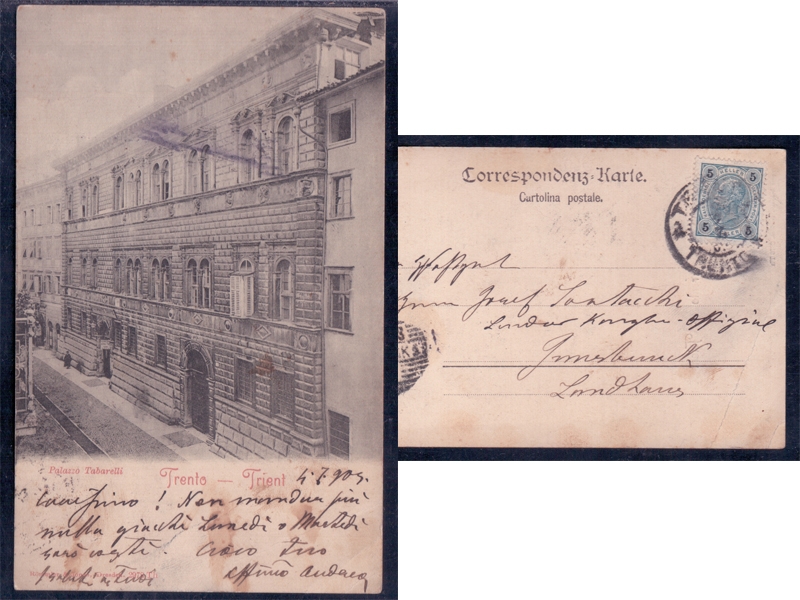 Palazzo Tabarelli
Trento — Trient
4.7.903.
Carissimo! Non mandar più
nulla giacchè Lunedì o Martedì
sarò costì. Ciao Tuo
aff.mo Andrea
Correspondenz-Karte.
Cartolina postale.
5 5
HELLER
5 5
TRIENT
TRENTO
Herrn Josef Santacchi
Innsbruck
Landhaus